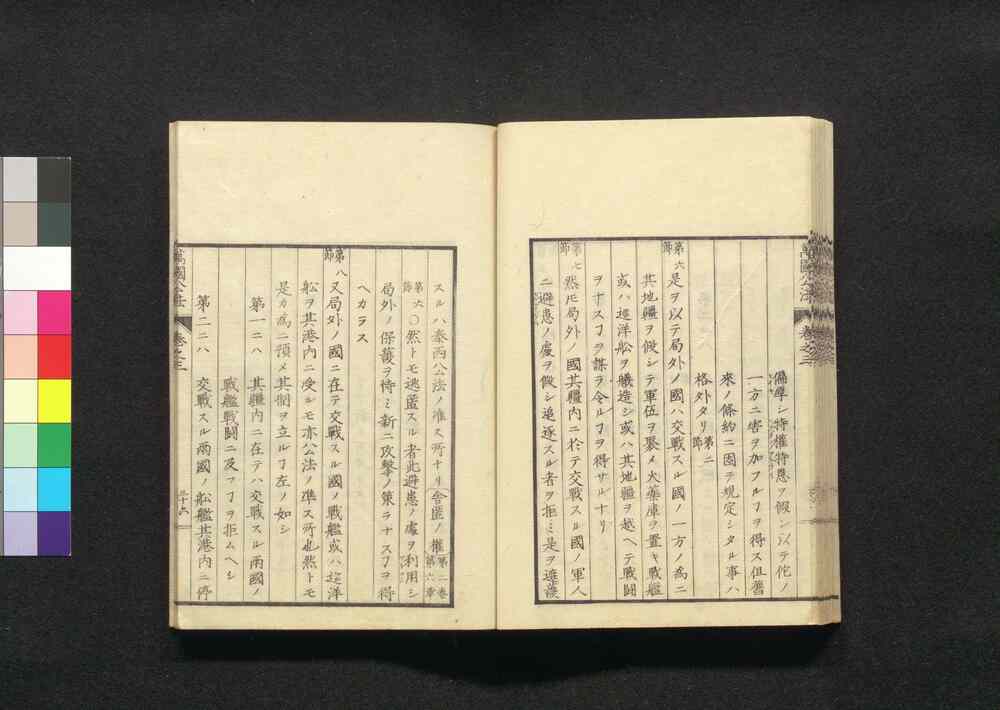 萬國公法 卷之三
偏厚シ特權特恩ヲ假シ以テ佗ノ
一方ニ害ヲ加フルヿヲ得ス但舊
來ノ條約ニ因テ規定シタル事ハ
格外タリ 第二節
第六節 是ヲ以テ局外ノ國ハ交戰スル國ノ一方ノ為ニ
其地疆ヲ假シテ軍伍ヲ聚メ火藥庫ヲ置キ戰艦
或ハ巡洋舩ヲ艤造シ或ハ其地疆ヲ越ヘテ戰鬪
ヲナスヿヲ謀ラ令ルヿヲ得サルナリ
第七節 然モ局外ノ國其疆內ニ於テ交戰スル國ノ軍人
ニ避患ノ處ヲ假シ追逐スル者ヲ拒ミ是ヲ遮護
スルハ泰西公法ノ准ス所ナリ 舍匿ノ權 第二卷第六章
第六節 ○然トモ逃匿スル者此避患ノ處ヲ利用シ
局外ノ保護ヲ恃ミ新ニ攻擊ノ策ヲナスヿヲ得
ヘカラス
第八節 又局外ノ國ニ在テ交戰スル國ノ戰艦或ハ巡洋
舩ヲ其港內ニ受シモ亦公法ノ準ス所也然トモ
是カ為ニ預メ其制ヲ立ルヿ左ノ如シ
第一ニハ 其疆內ニ在テハ交戰スル兩國ノ
戰艦戰鬪ニ及フヿヲ拒ムヘシ
第二ニハ 交戰スル兩國ノ舩艦其港內ニ停
萬國公法 卷之三 三十六